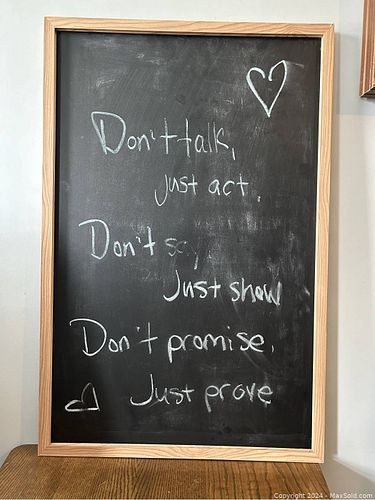 Don't talk,
just act.
Don't
Just show
Don't promise.
Just prove
Copyright 2024 - MaxSold.com